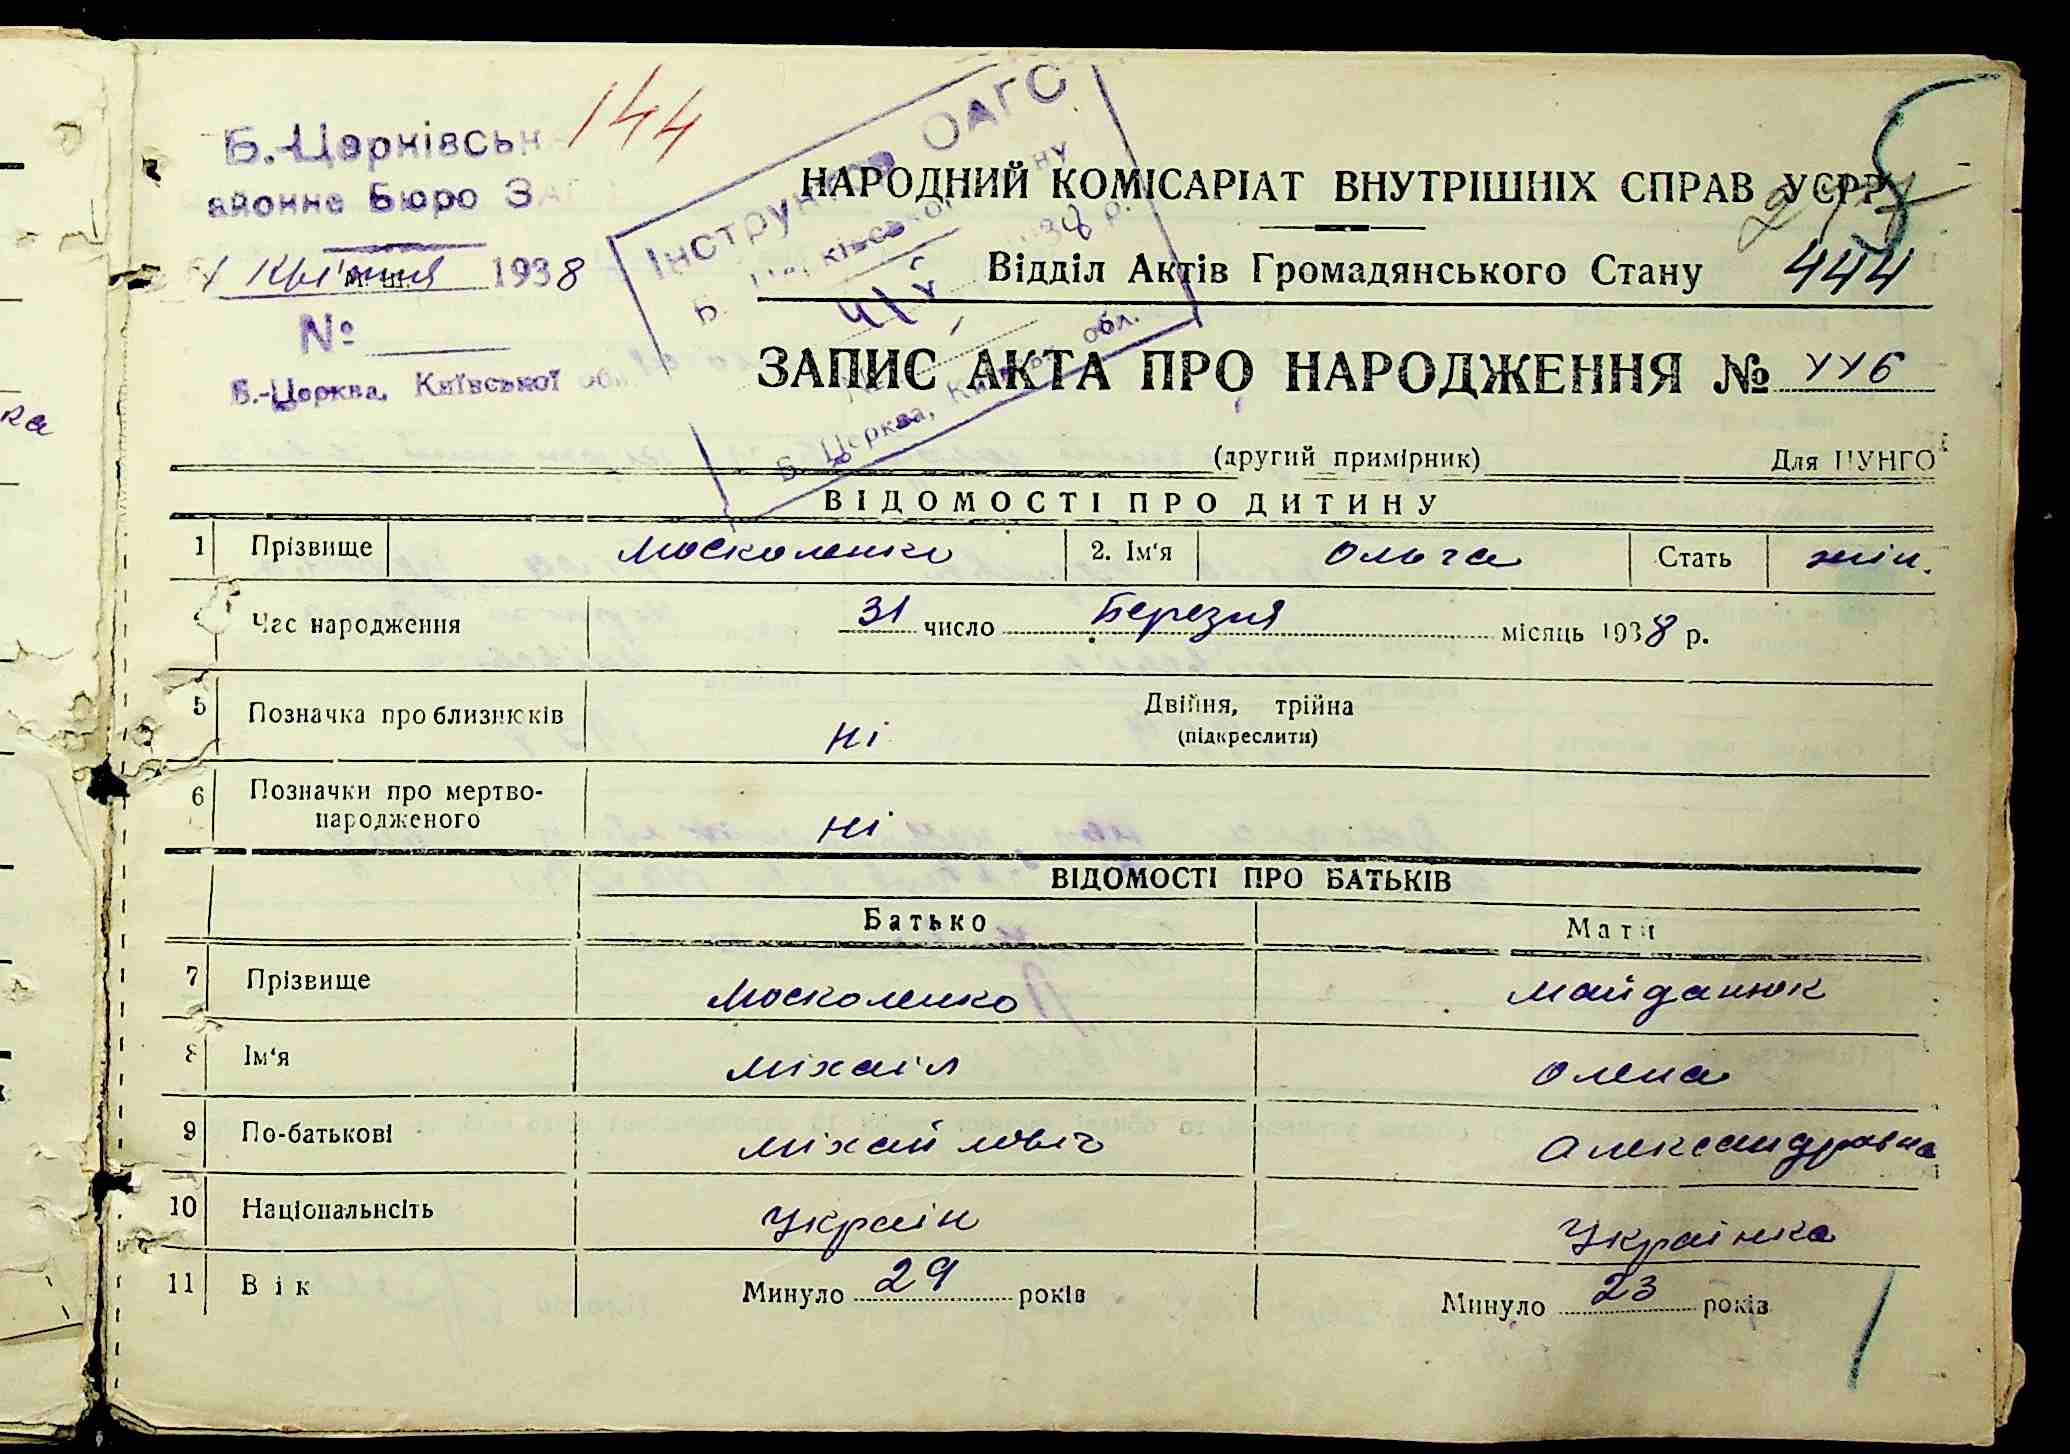 Б.-Церківськ
айонне Бюро ЗАГ
144
Квітня 1938
№
Б.-Церква, Київської обл.
Інструк ОАГС
Б. Ц ківсько
1938 р.
Б. Церква, Київськ обл.
НАРОДНИЙ КОМІСАРІАТ ВНУТРІШНІХ СПРАВ УСРР
Відділ Актів Громадянського Стану 444
ЗАПИС АКТА ПРО НАРОДЖЕННЯ № 446
(другий примірник) Для ЦУНГО
ВІДОМОСТІ ПРО ДИТИНУ
1 Прізвище Москоленко 2. Ім'я Ольга Стать жін.
Час народження 31 число Березня місяць 1938 р.
5 Позначка про близнюків ні Двійня, трійна
(підкреслити)
6 Позначки про мертво-
народженого ні
ВІДОМОСТІ ПРО БАТЬКІВ
Батько Мати
7 Прізвище Москоленко Майданюк
8 Ім'я Міхаіл Олена
9 По-батькові Міхайловіч Александровна
10 Національнсіть Украін Украінка
11 Вік Минуло 29 років Минуло 23 років
ка